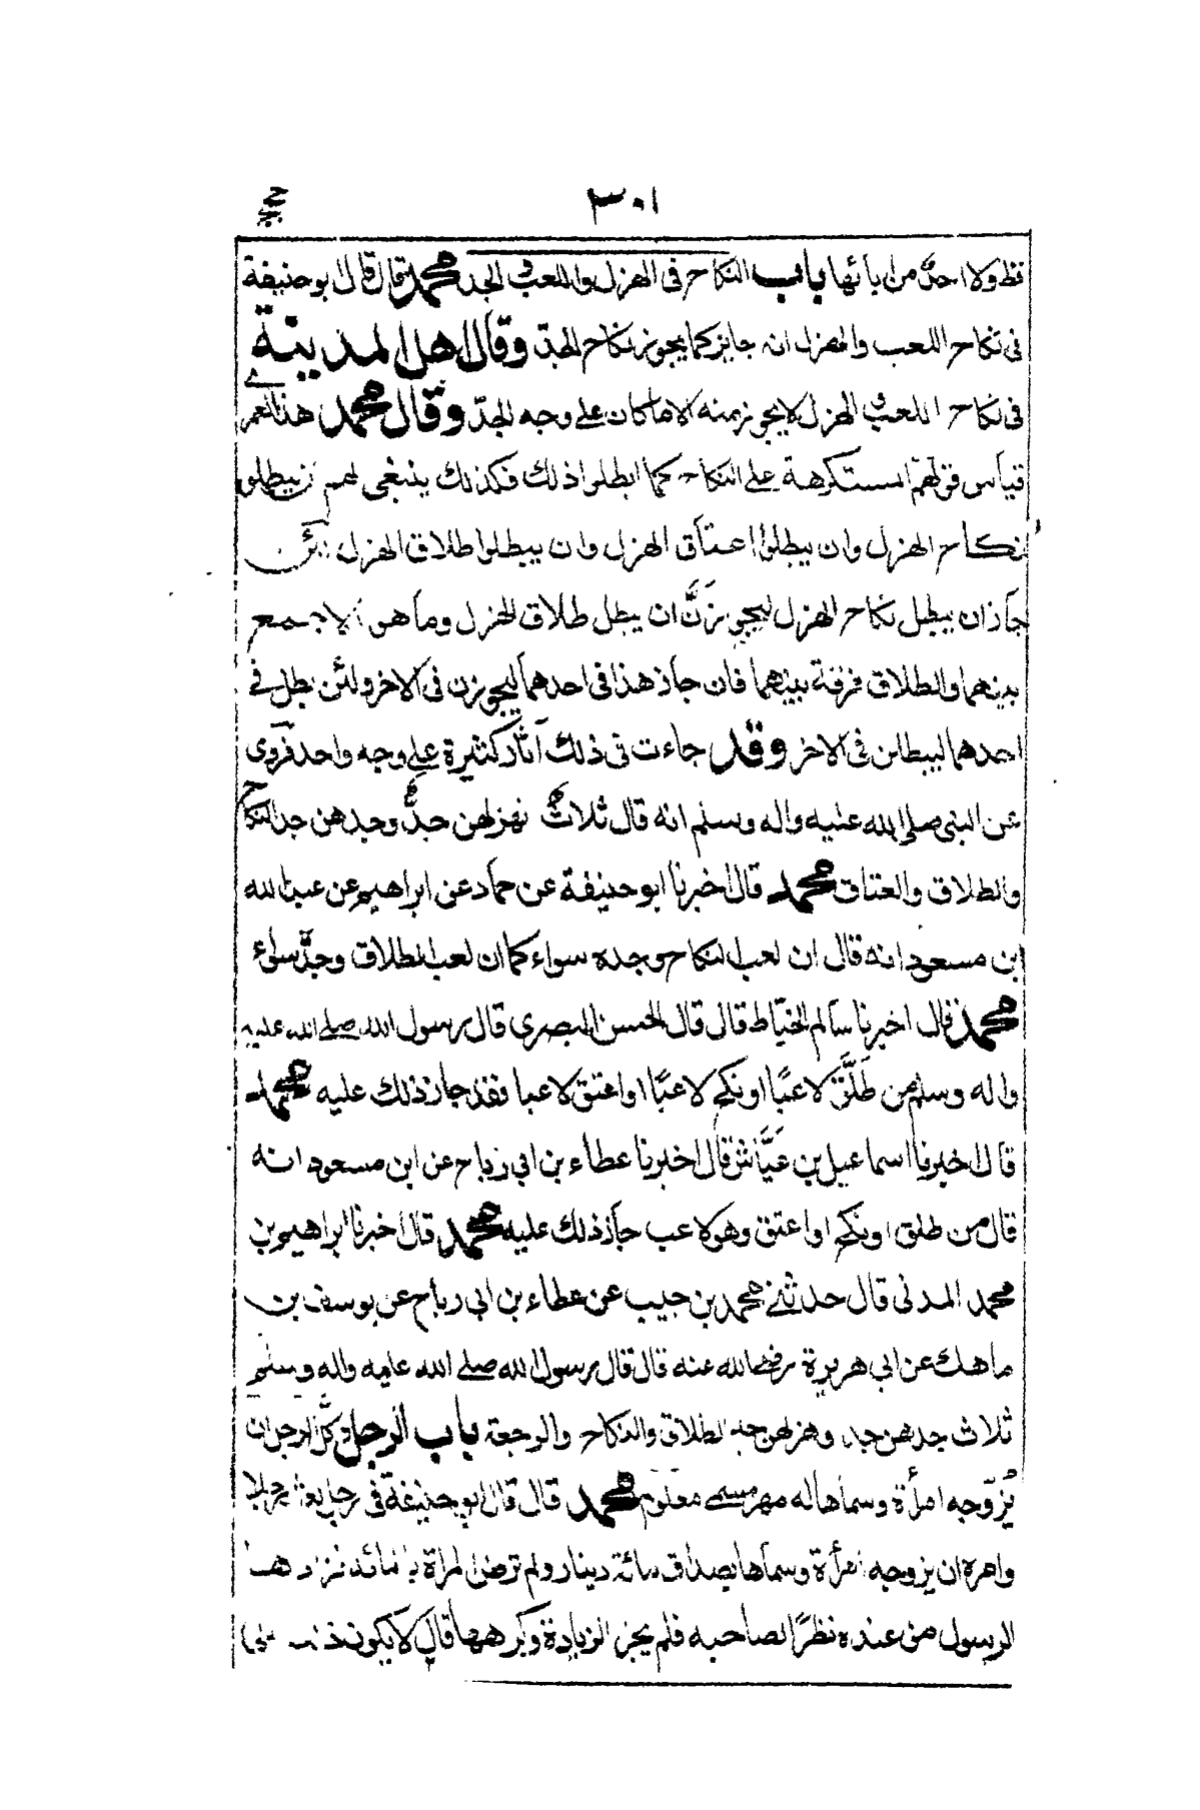 ٣٠١
قط ولا احد من ابائها باب النكاح فى الهزل واللعب والجد محمد قال قال ابو حنيفة
فى نكاح اللعب والهزل انه جايز كما يجوز نكاح الجدّ وقال اهل المدينة
فى نكاح اللعب والهزل لا يجوز منه الا ما كان على وجه الجدّ وقال محمد هذا لعمرى
قياس قولهم المستكرهة على النكاح كما ابطلوا ذلك فكذلك ينبغى لهم ان يبطلوا
نكاح الهزل وان يبطلوا اعتاق الهزل وان يبطلوا طلاق الهزل لئن
جاز ان يبطل نكاح الهزل ليجوزنّ ان يبطل طلاق الهزل وما هو الا جمع
بينهما والطلاق فرقة بينهما فان جاز هذا فى احدهما ليجوزن فى الاخر ولئن بطل فى
احدهما ليبطلن فى الاخر وقد جاءت فى ذلك آثار كثيرة على وجه واحد فروى
عن النبى صلى الله عليه واله وسلم انه قال ثلاث هزلهن جدّ وجدهن جد النكاح
والطلاق والعتاق محمد قال اخبرنا ابو حنيفة عن حماد عن ابراهيم عن عبد الله
ابن مسعود انه قال ان لعب النكاح وجده سواء كما ان لعب الطلاق وجدّه سواء
محمد قال اخبرنا سالم الخيّاط قال قال الحسن البصرى قال رسول الله صلى الله عليه
واله وسلم من طَلَّق لاعبًا او نكح لاعبًا او اعتق لاعبا فقد جاز ذلك عليه محمد
قال اخبرنا اسماعيل بن عَيَّاش قال اخبرنا عطاء بن ابى رباح عن ابن مسعود انه
قال من طلق او نكح او اعتق وهو لاعب جاز ذلك عليه محمد قال اخبرنا ابراهيم بن
محمد المدنى قال حدثنى محمد بن حبيب عن عطاء بن ابى رباح عن يوسف بن
ماهك عن ابى هريرة رضى الله عنه قال قال رسول الله صلى الله عليه واله وسلم
ثلاث جدهن جد وهزلهن جد الطلاق والنكاح والرجعة باب الرجل وكّل الرجل ان
يُزوّجه امرأة وسماها له مهر مسمى معلوم محمد قال قال ابو حنيفة فى رجل بعث رجلا
وامره ان يزوجه امرأة وسماها بصداق مائة دينار ولم ترض المرأة بالمائة فزادها
الرسول من عنده نظرًا لصاحبه فلم يجز الزيادة وكرهها قال لا يكون ذلك على